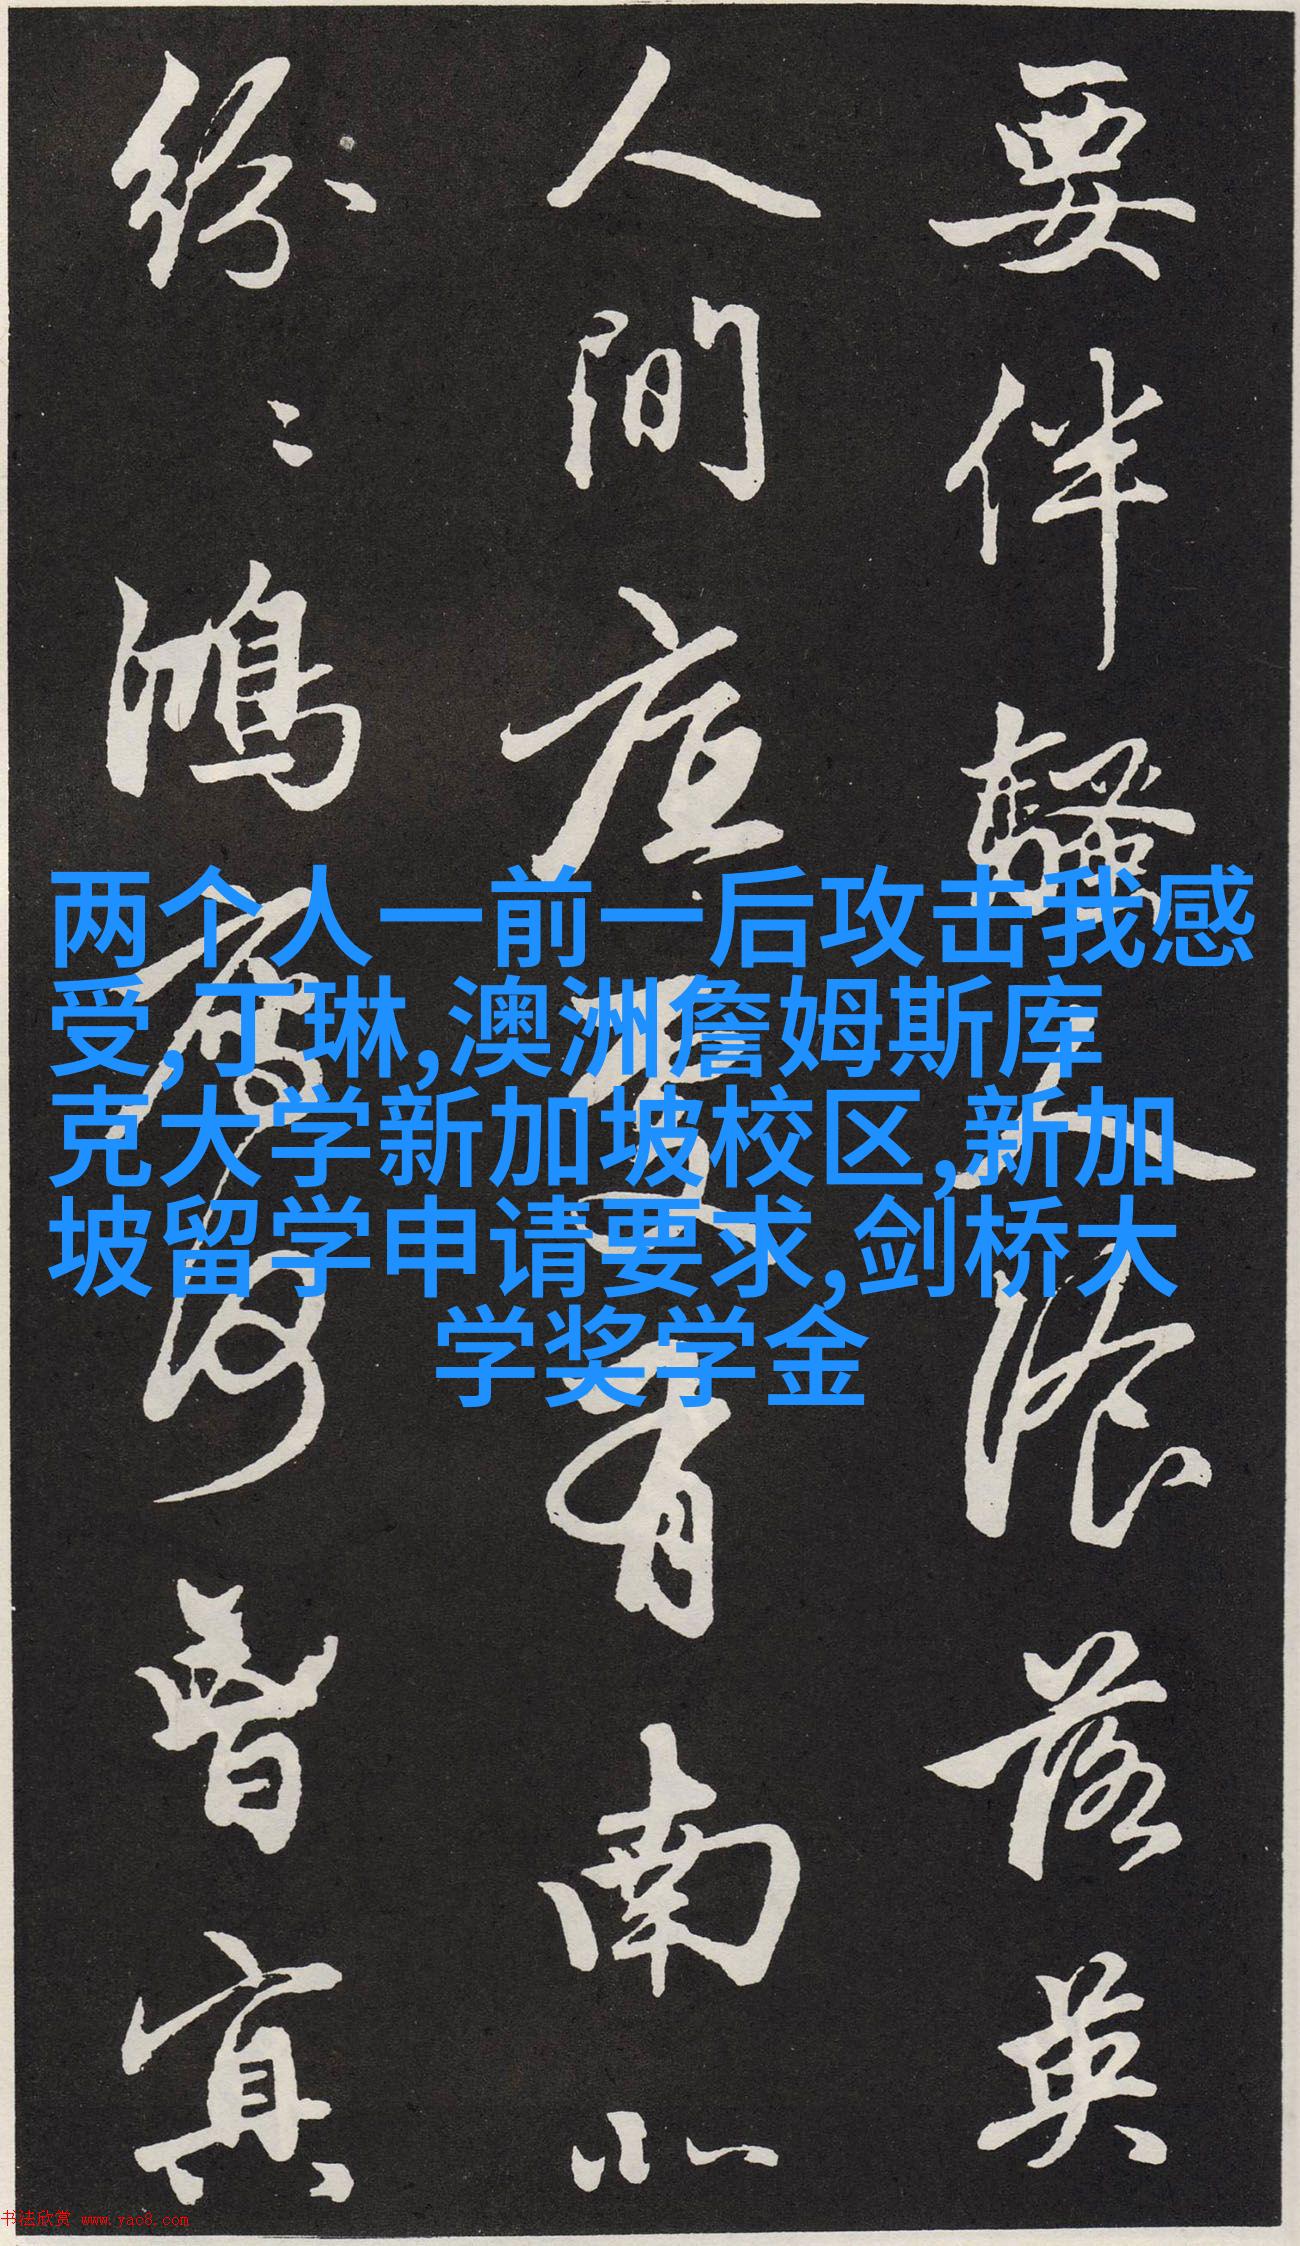 要伴騷人飡落英
人間底處有南北
紛〻鴻鴈何曾冥
两个人一前一后攻击我感
受,丁琳,澳洲詹姆斯库
克大学新加坡校区,新加
坡留学申请要求,剑桥大
学奖学金
书法欣赏 www.yac8.com